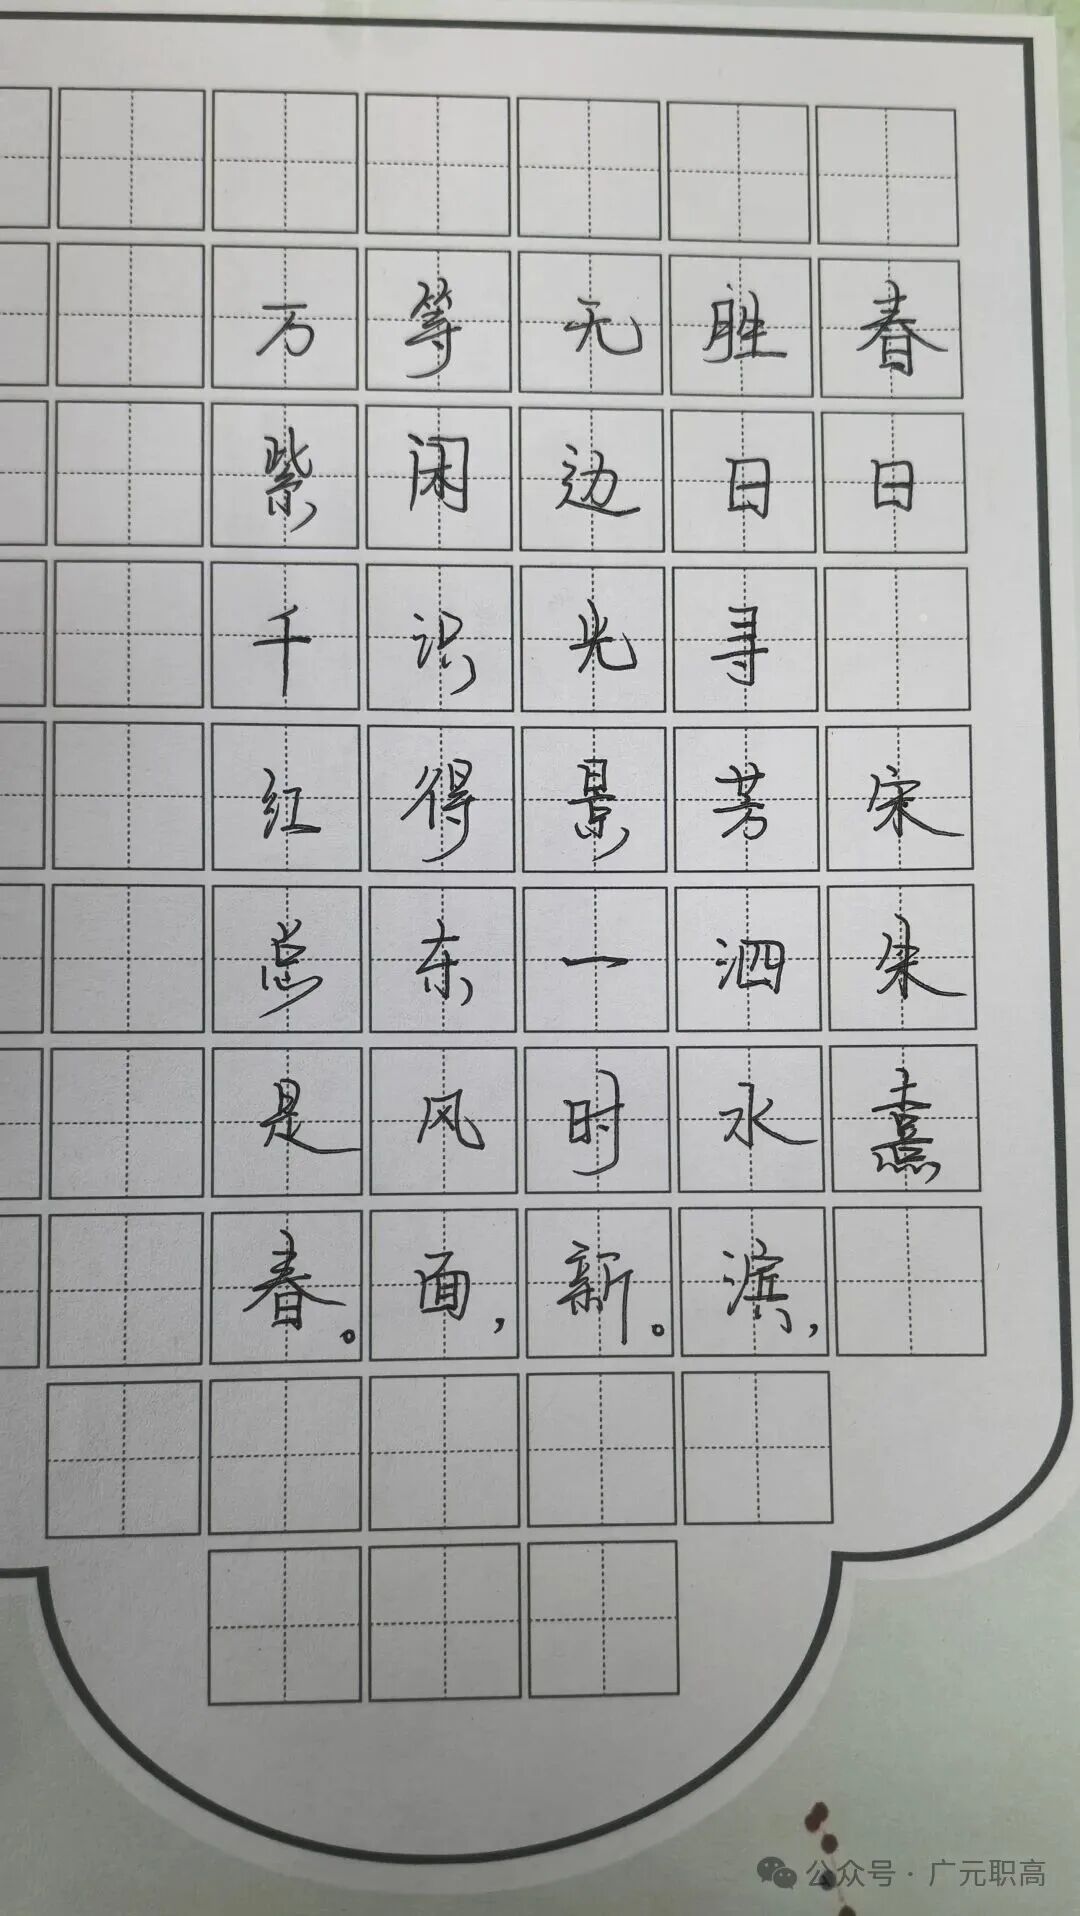 春日 宋朱熹
胜日寻芳泗水滨，
无边光景一时新。
等闲识得东风面，
万紫千红总是春。
公众号·广元职高